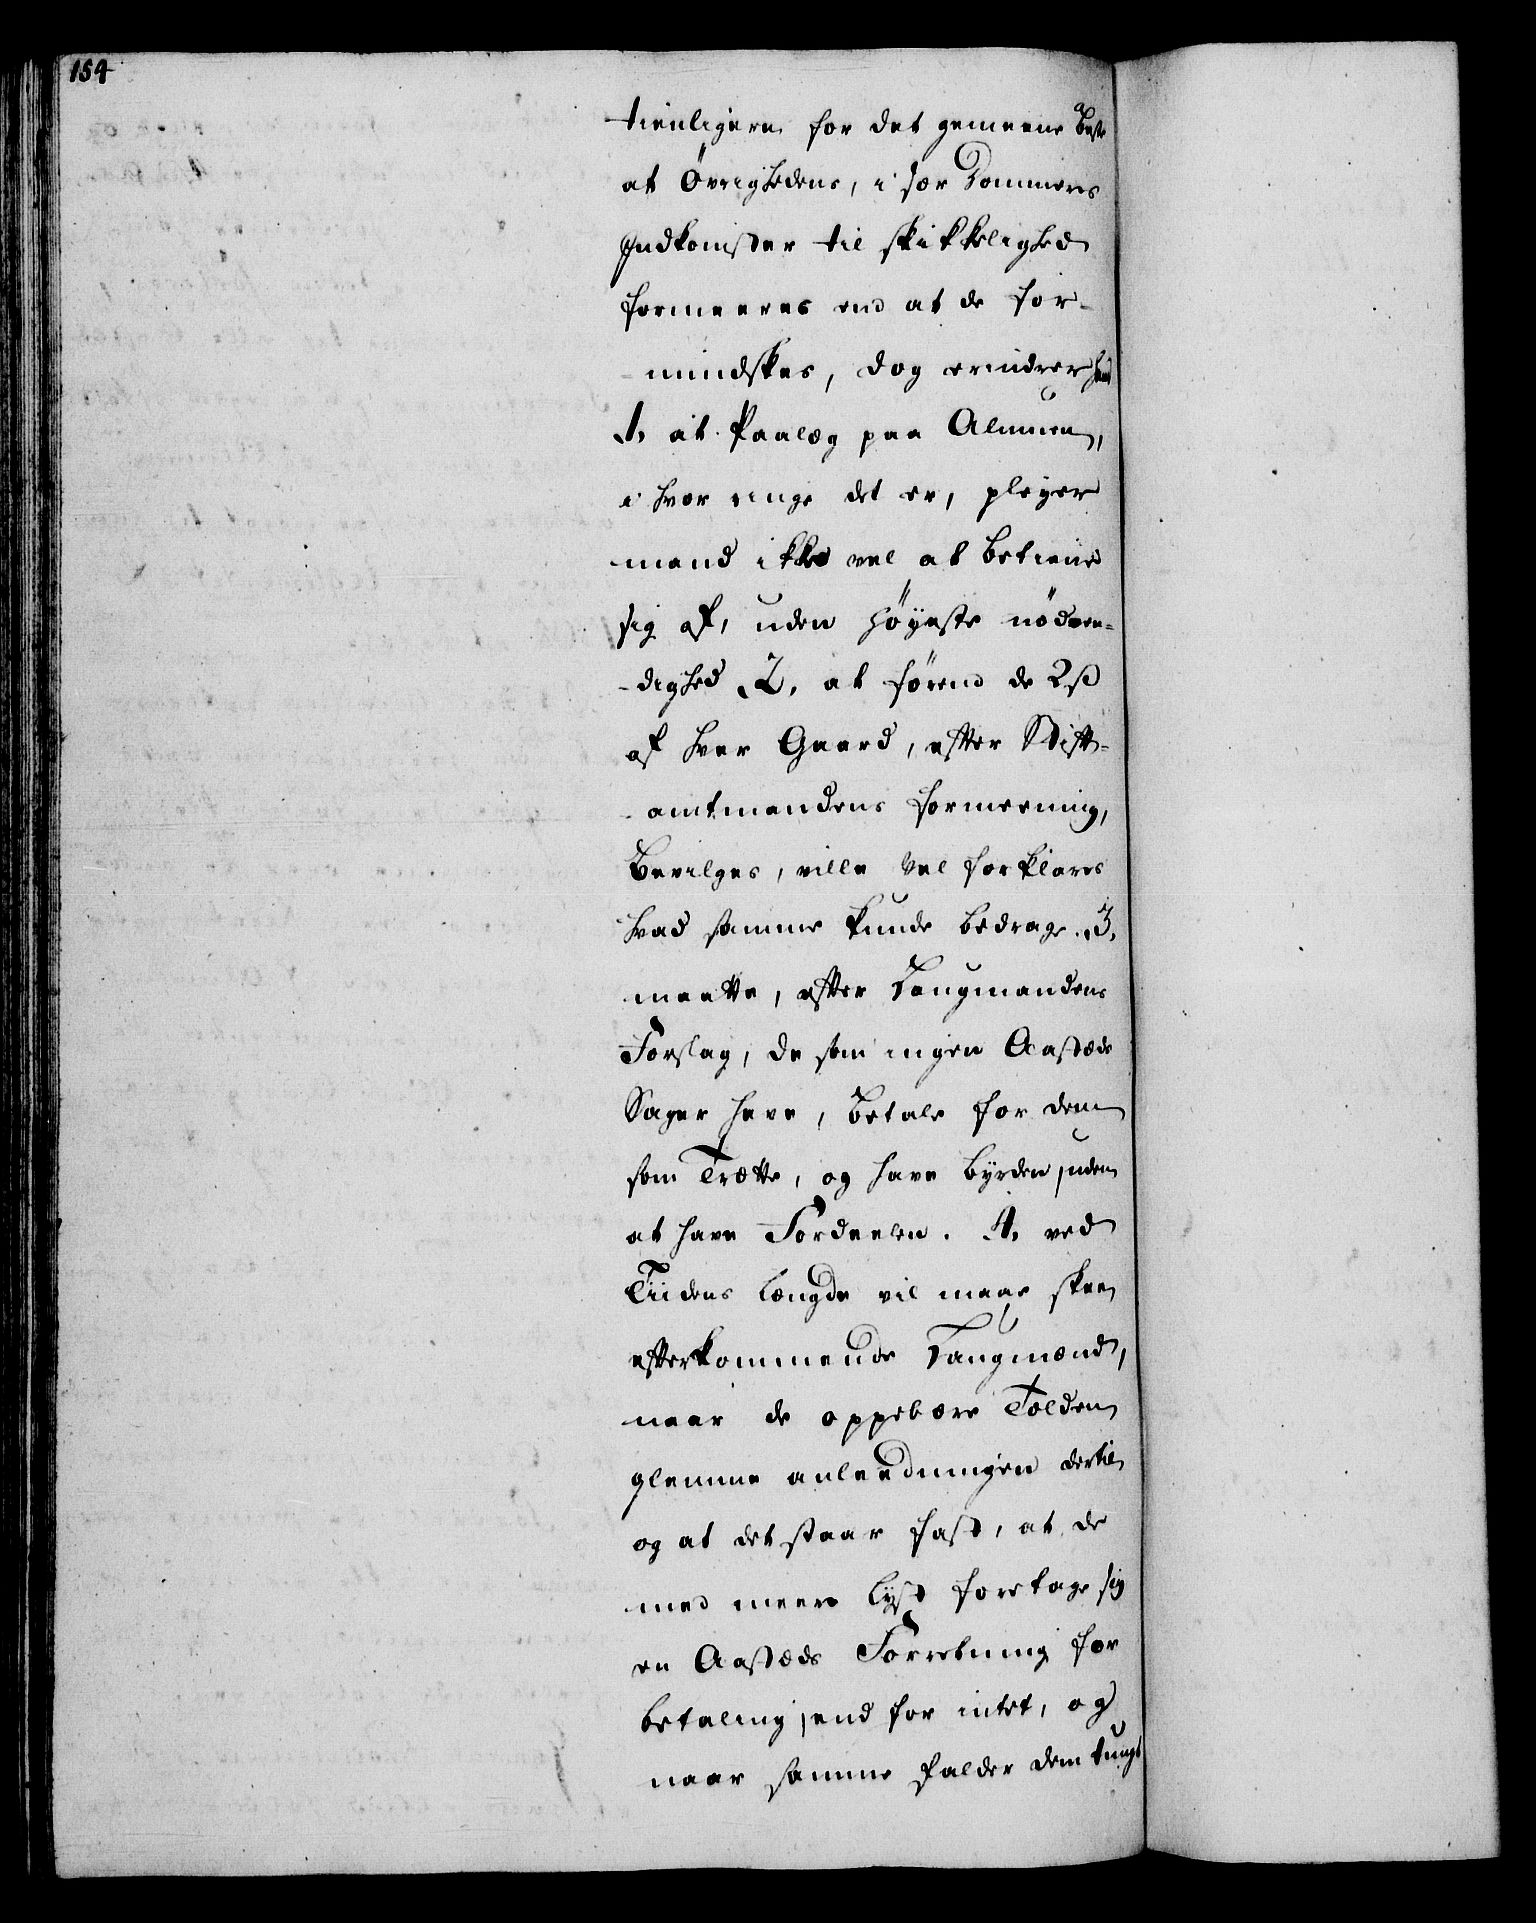 154
tienligere for det gemeene Beste
at Övrighedens, i sær Dommeres
Indkomster til skikkelighed
formeeres end at de for-
-mindskes, dog erindrer hand
1, at Paalæg paa Almuen,
i hvor ringe det er, pleyer
mand ikke vel at betiene
sig af, uden høyeste nödven-
-dighed 2, at förend de 2 ß
af hver Gaard, efter Stift-
-amtmandens formeening,
Bevilges, ville vel forklares
hvad samme kunde bedrage. 3,
maatte, efter Laugmandens
Forslag, de som ingen Aastæds
Sager have, betale for dem
som Trætte, og have byrden, uden
at have Fordeelen. 4, ved
Tiidens længde vil maae skee
efterkommende Laugmænd,
naar de oppebære Tolden
glemme anleedningen dertil
og at det staar fast, at de
med meere lyst foretage sig
en Aastæds Forretning for
betaling, end for intet, og
naar samme falder dem tungt